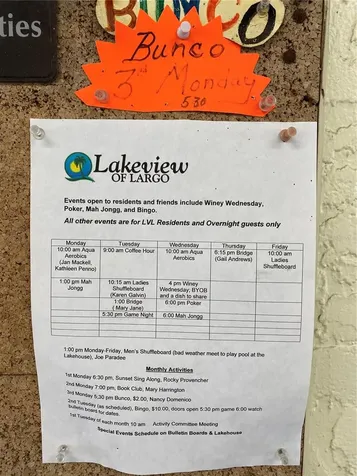 BUNCO
ties
Bunco
3rd Monday
5:30
Lakeview
OF LARGO
Events open to residents and friends include Winey Wednesday,
Poker, Mah Jongg, and Bingo.
All other events are for LVL Residents and Overnight guests only
Monday Tuesday Wednesday Thursday Friday
10:00 am Aqua Aerobics (Jan Mackell, Kathleen Penno) 9:00 am Coffee Hour 10:00 am Aqua Aerobics 6:15 pm Bridge (Gail Andrews) 10:00 am Ladies Shuffleboard
1:00 pm Mah Jongg 10:15 am Ladies Shuffleboard (Karen Galvin) 4 pm Winey Wednesday, BYOB and a dish to share
1:00 Bridge ( Mary Jane) 6:00 pm Poker
5:30 pm Game Night 6:00 Mah Jongg
1:00 pm Monday-Friday, Men's Shuffleboard (bad weather meet to play pool at the
Lakehouse), Joe Paradee
Monthly Activities
1st Monday 6:30 pm, Sunset Sing Along, Rocky Provencher
2nd Monday 7:00 pm, Book Club, Mary Harrington
3rd Monday 5:30 pm Bunco, $2.00, Nancy Domenico
2nd Tuesday (as scheduled), Bingo, $10.00, doors open 5:30 pm game 6:00 watch
bulletin board for dates.
1st Tuesday of each month 10 am Activity Committee Meeting
Special Events Schedule on Bulletin Boards & Lakehouse